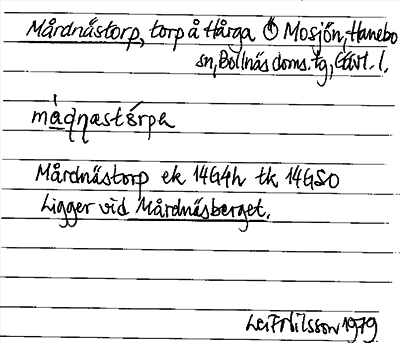 Mårdnästorp, torp å Hårga Ö Mosjön, Hanebo
sn, Bollnäs doms. tg, Gävl. l.
Mårdnästorp ek 14G4h tk 14GSO
Ligger vid Mårdnäsberget.
Leif Nilsson 1979